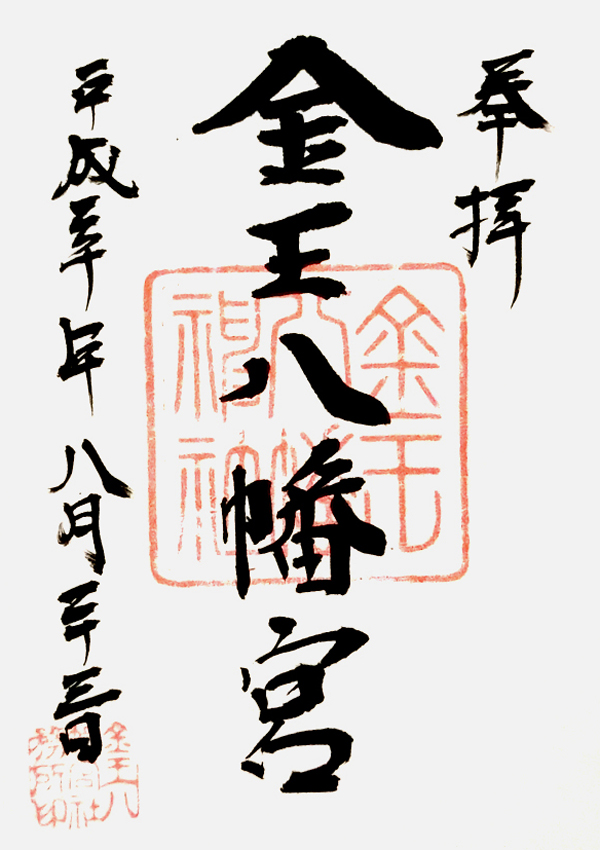 奉拝
金王八幡宮
平成三十年八月二十三日
金王
八幡
神社
金王八
幡宮社
務所印